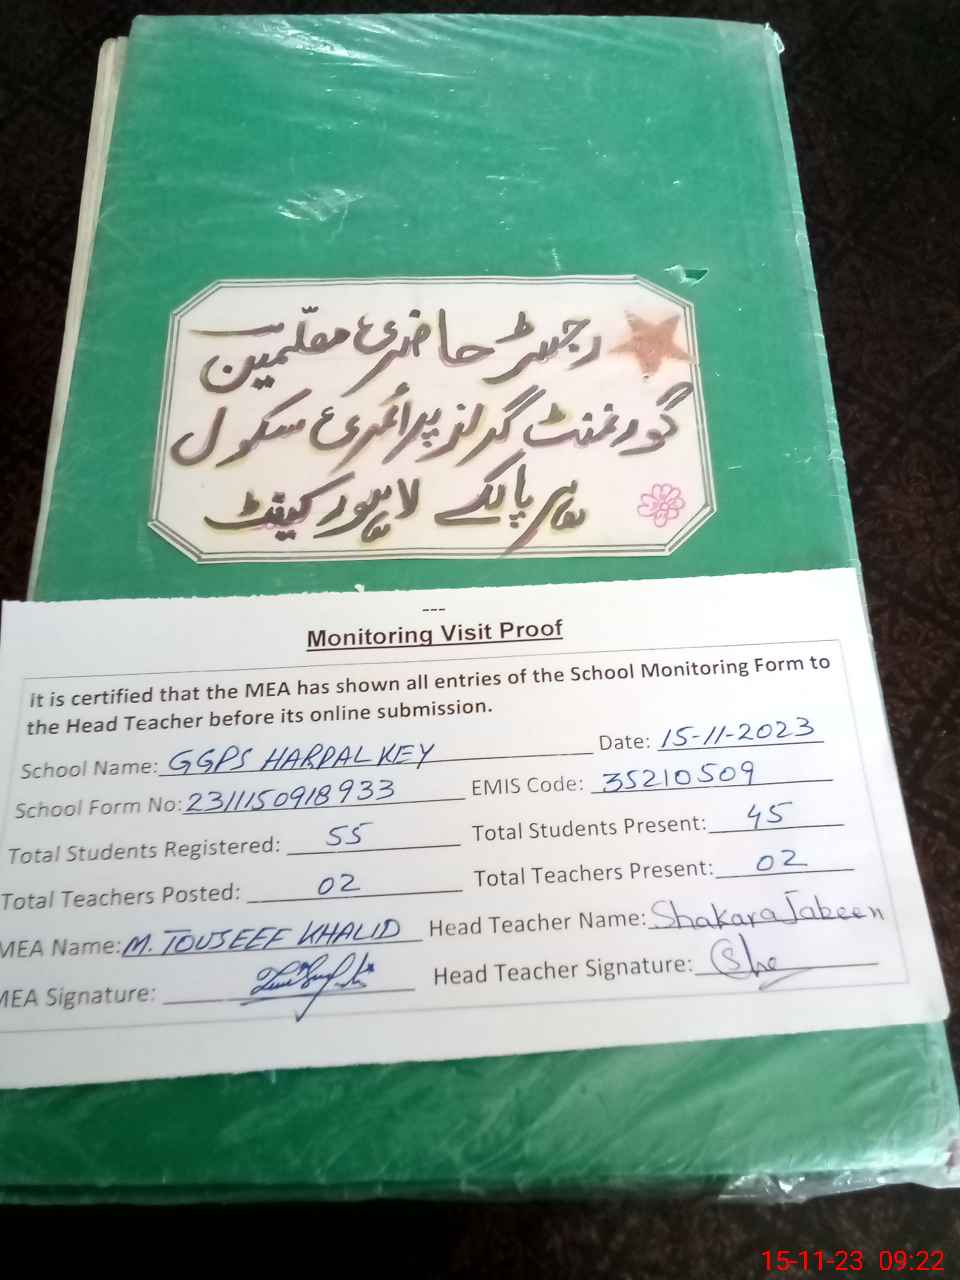 رجسٹر حاضری معلّمین
گورنمنٹ گرلز پرائمری سکول
ہرپالکے لاہور کینٹ
---
Monitoring Visit Proof
it is certified that the MEA has shown all entries of the School Monitoring Form to
the Head Teacher before its online submission.
School Name: GGPS HARPAL KEY Date: 15-11-2023
School Form No: 2311150918933 EMIS Code: 35210509
Total Students Registered: 55 Total Students Present: 45
Total Teachers Posted: 02 Total Teachers Present: 02
MEA Name: M. TOUSEEF KHALID Head Teacher Name: Shakara Jabeen
MEA Signature: Head Teacher Signature: She
15-11-23 09:22